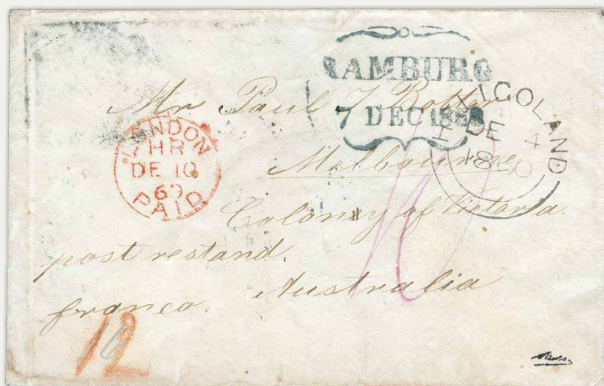 HAMBURG
7 DEC 18
HELIGOLAND
DE 4
1860
LONDON
HR
DE 10
60
PAID
Mr Paul J
Melbourne
Colony of Victoria.
post restand.
franco. Australia
12